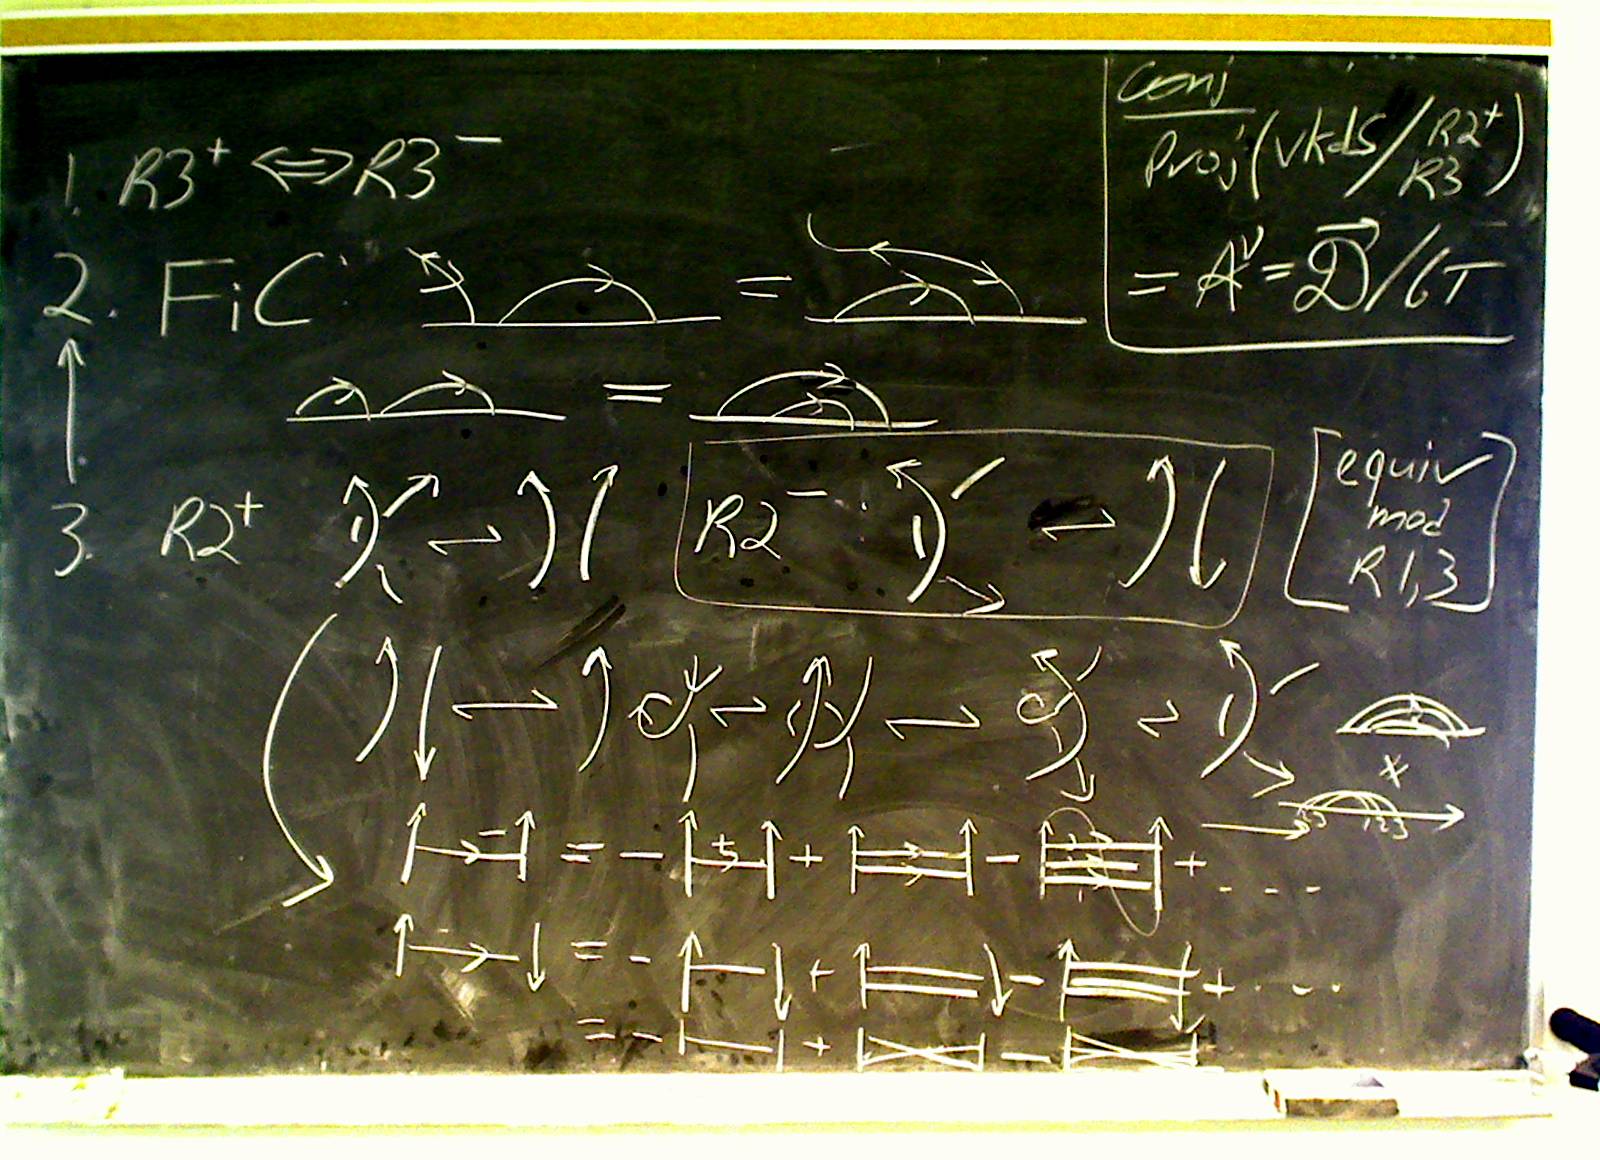 1. R3⁺ ⇔ R3⁻
Conj
Proj(vkds/R2⁺ R3)
= Aᵛ = D⃗/6T
2. FiC:
=
=
3. R2⁺ ⇌
R2⁻: ⇌
[equiv
mod
R1,3]
⇌ ⇌ ⇌ ⇌
123
- = - + + - + ...
= - + - + ...
= - + -